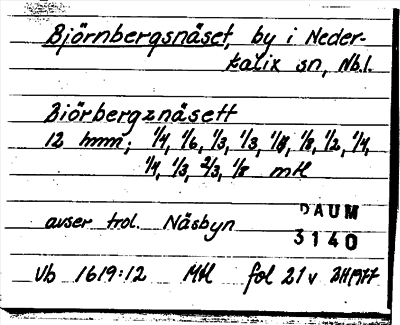 Björnbergsnäset, by i Neder-
kalix sn, Nb.l.
Biörbergznäsett
12 hmn; 1/4, 1/6, 1/3, 1/3, 1/8, 1/8, 1/2, 1/4,
1/4, 1/3, 2/3, 1/8 mtl
avser trol. Näsbyn
DAUM
3140
Vb 1619:12 Mtl fol 21v 1977